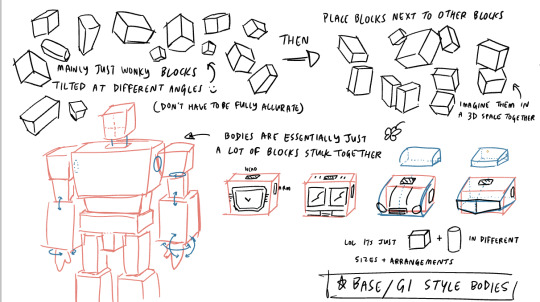 PLACE BLOCKS NEXT TO OTHER BLOCKS
THEN
MAINLY JUST WONKY BLOCKS
TILTED AT DIFFERENT ANGLES
(DON'T HAVE TO BE FULLY ACCURATE)
IMAGINE THEM IN
A 3D SPACE TOGETHER
BODIES ARE ESSENTIALLY JUST
A LOT OF BLOCKS STUCK TOGETHER
HEAD
ARM
LOL ITS JUST + IN DIFFERENT
SIZES + ARRANGEMENTS
BASE/G1 STYLE BODIES